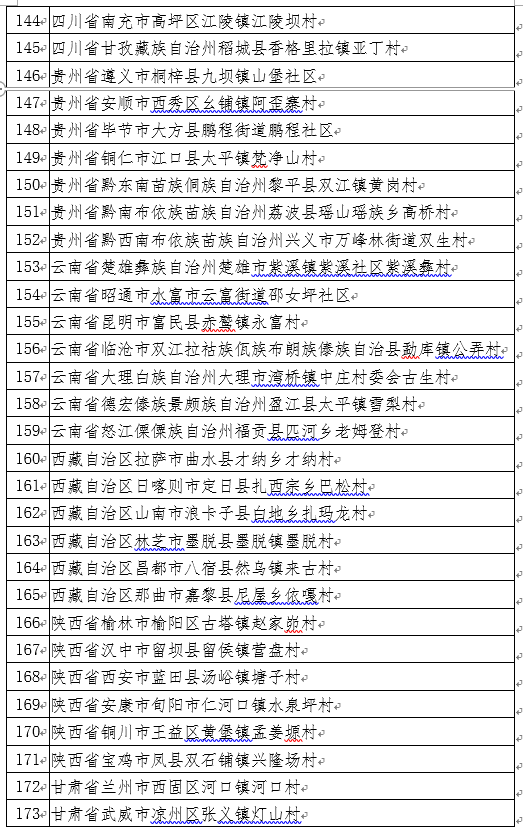 144 四川省南充市高坪区江陵镇江陵坝村
145 四川省甘孜藏族自治州稻城县香格里拉镇亚丁村
146 贵州省遵义市桐梓县九坝镇山堡社区
147 贵州省安顺市西秀区幺铺镇阿歪寨村
148 贵州省毕节市大方县鹏程街道鹏程社区
149 贵州省铜仁市江口县太平镇梵净山村
150 贵州省黔东南苗族侗族自治州黎平县双江镇黄岗村
151 贵州省黔南布依族苗族自治州荔波县瑶山瑶族乡高桥村
152 贵州省黔西南布依族苗族自治州兴义市万峰林街道双生村
153 云南省楚雄彝族自治州楚雄市紫溪镇紫溪社区紫溪彝村
154 云南省昭通市水富市云富街道邵女坪社区
155 云南省昆明市富民县赤鹫镇永富村
156 云南省临沧市双江拉祜族佤族布朗族傣族自治县勐库镇公弄村
157 云南省大理白族自治州大理市湾桥镇中庄村委会古生村
158 云南省德宏傣族景颇族自治州盈江县太平镇雪梨村
159 云南省怒江傈僳族自治州福贡县匹河乡老姆登村
160 西藏自治区拉萨市曲水县才纳乡才纳村
161 西藏自治区日喀则市定日县扎西宗乡巴松村
162 西藏自治区山南市浪卡子县白地乡扎玛龙村
163 西藏自治区林芝市墨脱县墨脱镇墨脱村
164 西藏自治区昌都市八宿县然乌镇来古村
165 西藏自治区那曲市嘉黎县尼屋乡依嘎村
166 陕西省榆林市榆阳区古塔镇赵家峁村
167 陕西省汉中市留坝县留侯镇营盘村
168 陕西省西安市蓝田县汤峪镇塘子村
169 陕西省安康市旬阳市仁河口镇水泉坪村
170 陕西省铜川市王益区黄堡镇孟姜塬村
171 陕西省宝鸡市凤县双石铺镇兴隆场村
172 甘肃省兰州市西固区河口镇河口村
173 甘肃省武威市凉州区张义镇灯山村